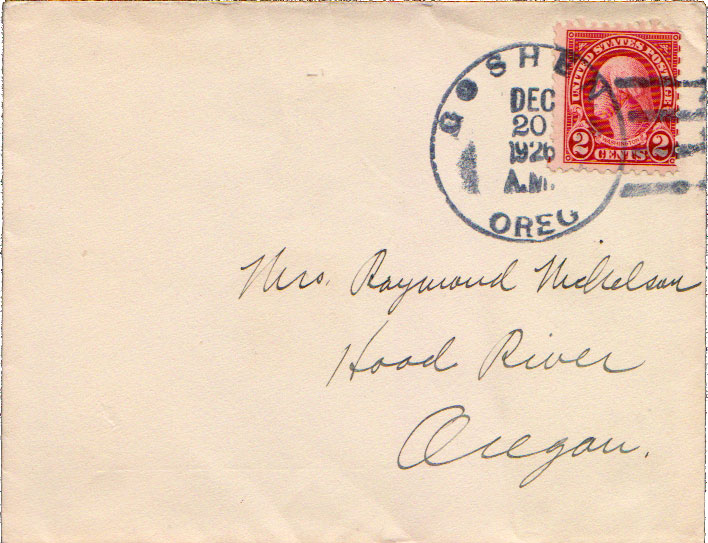 GOSHEN
DEC
20
1926
A.M.
OREG
UNITED STATES POSTAGE
WASHINGTON
2 CENTS 2
Mrs. Raymond Nickelson
Hood River
Oregon.